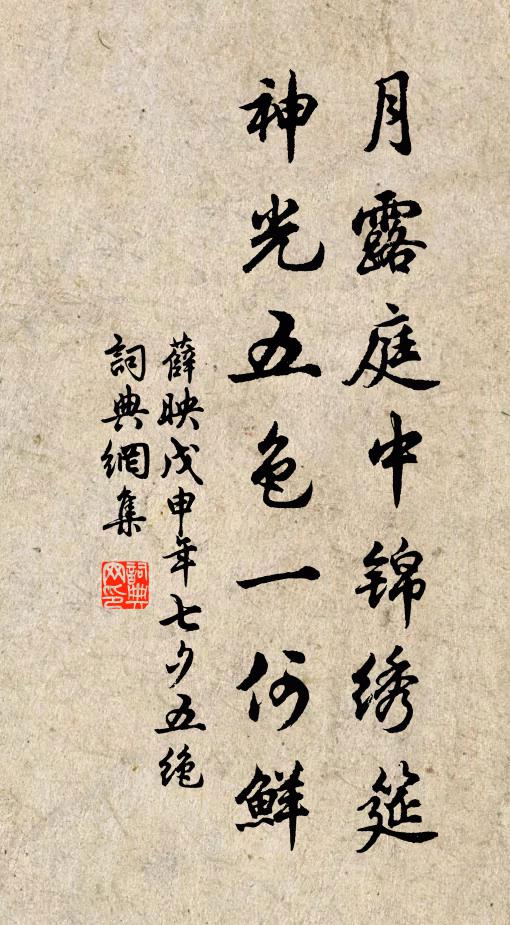 月露庭中锦绣筵
神光五色一何鲜
薛映戊申年七夕五绝
詞典網集
詞典網印